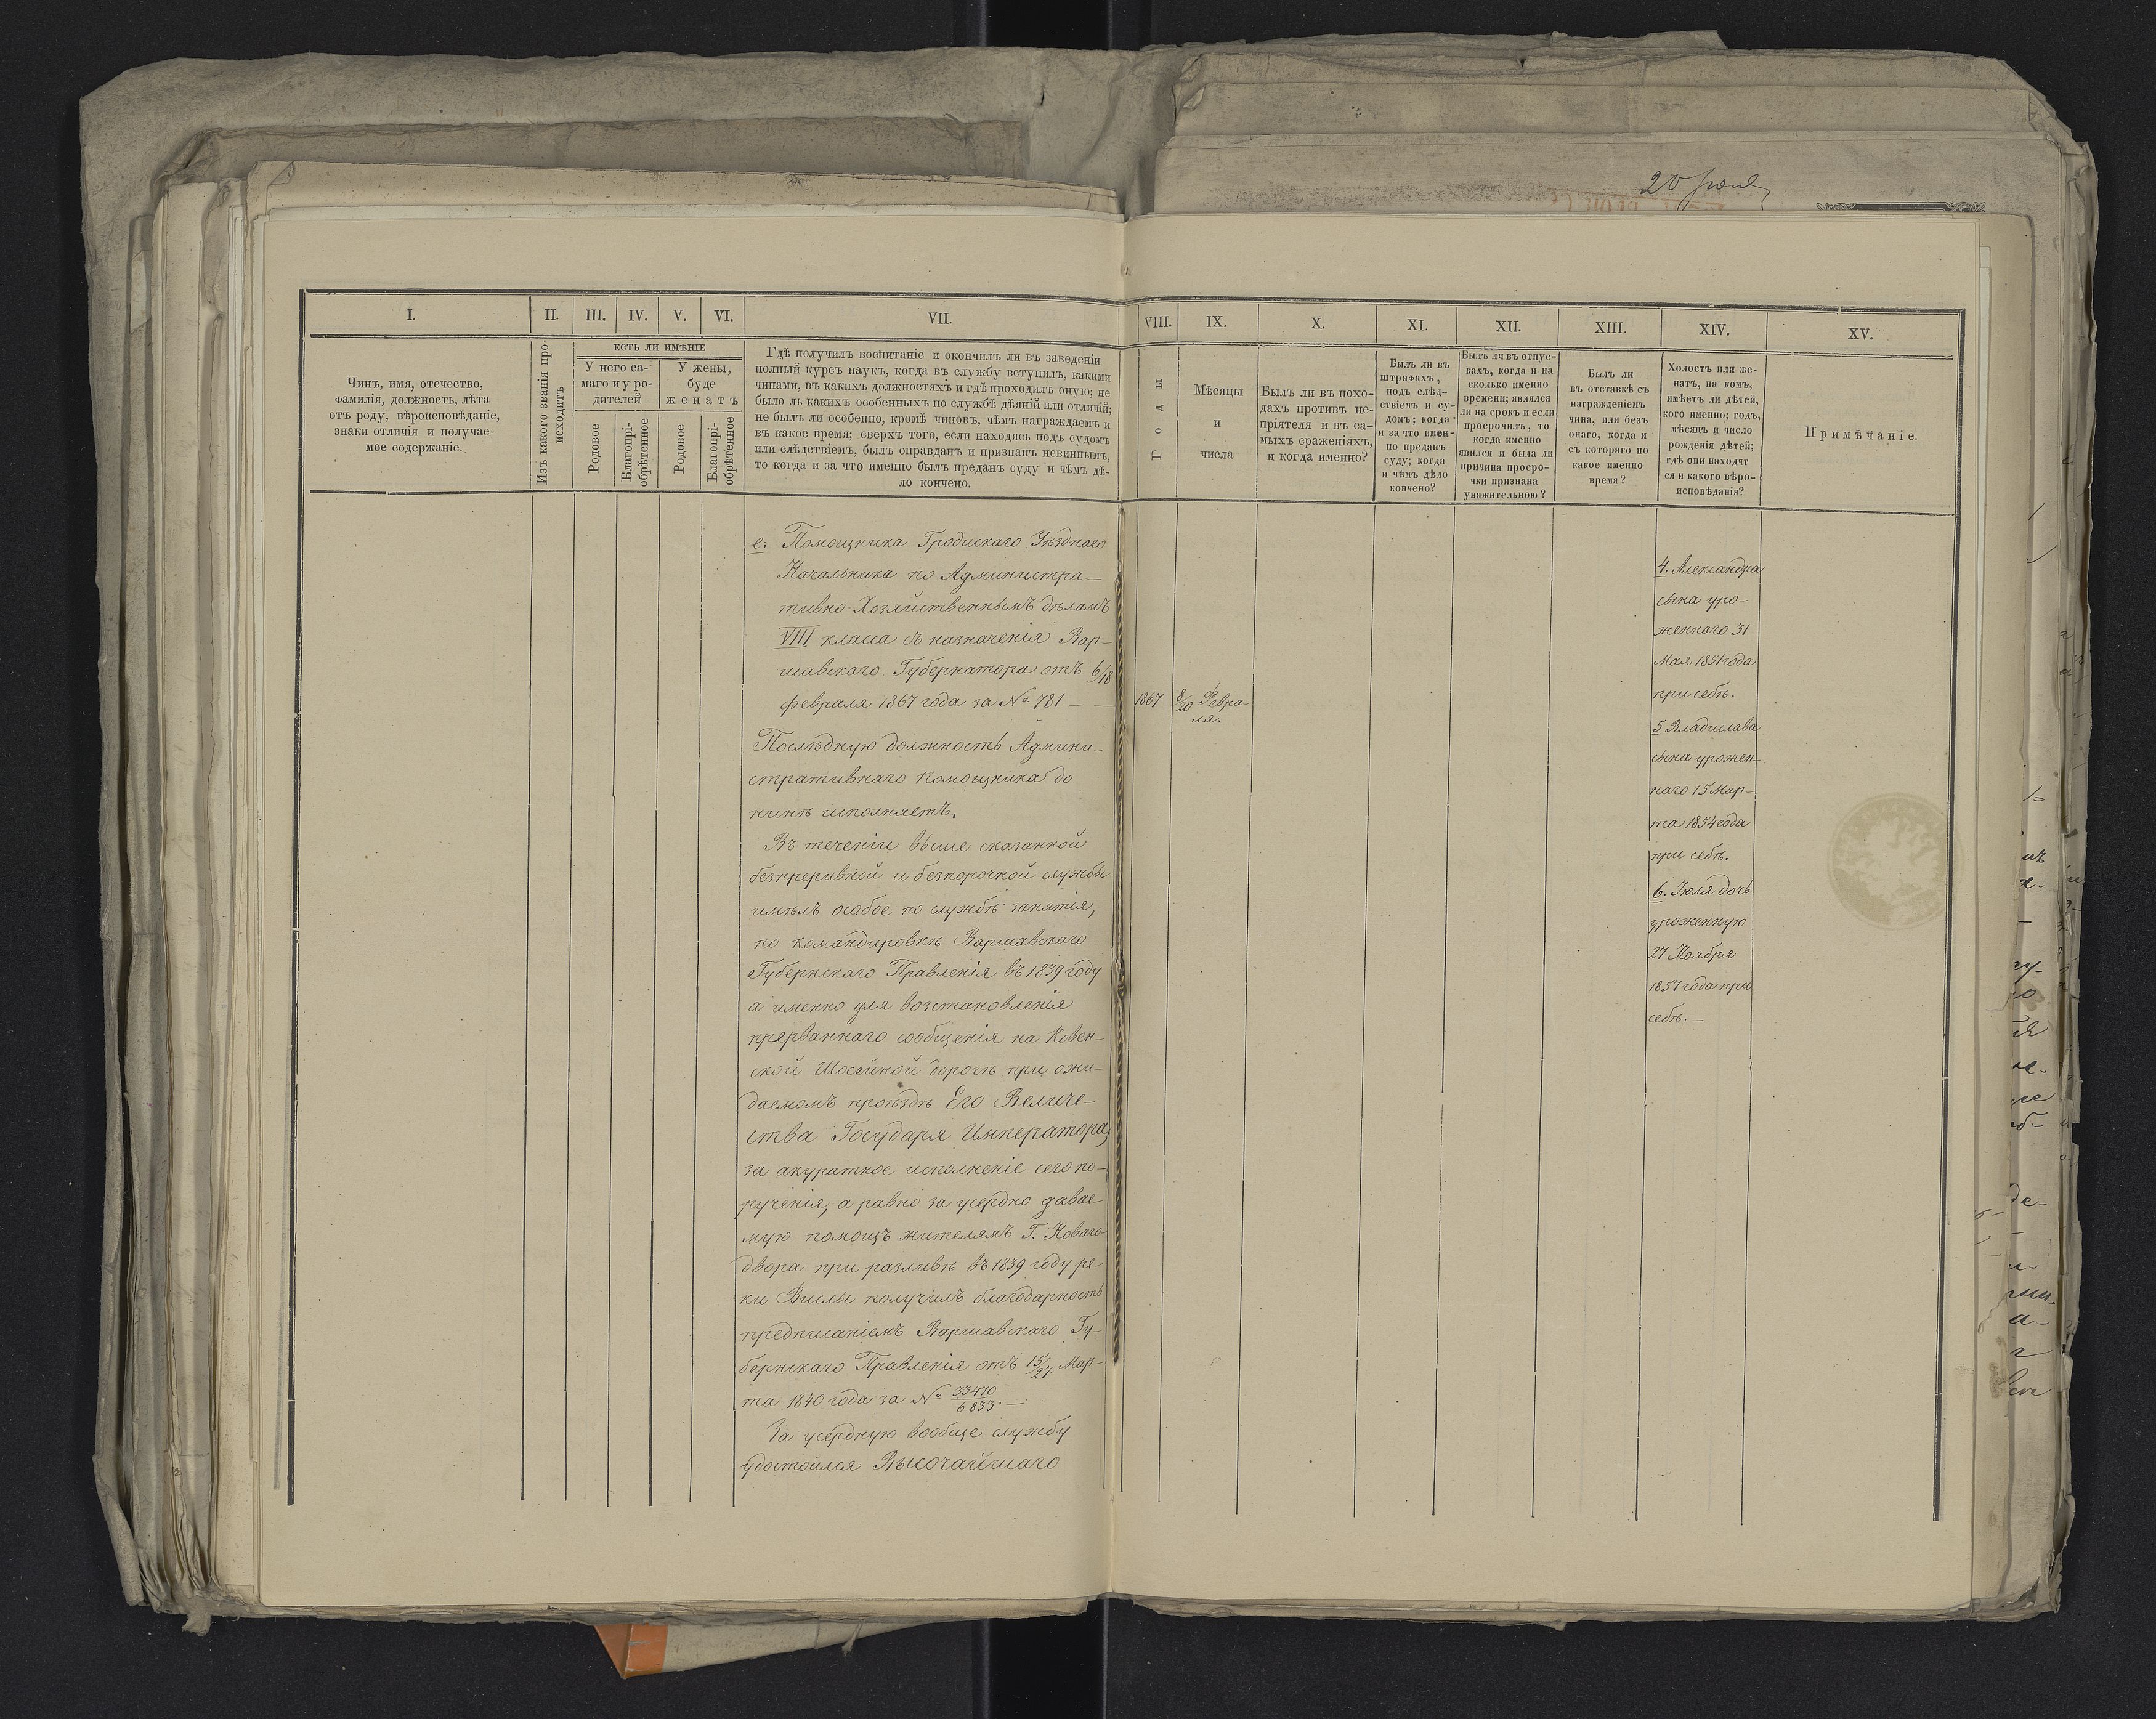 20
I.
II.
III.
IV.
V.
VI.
VII.
VIII.
IX.
X.
XI.
XII.
XIII.
XIV.
XV.
Чинъ, имя, отечество,
фамилія, должность, лѣта
отъ роду, вѣроисповѣданіе,
знаки отличія и получае-
мое содержаніе.
Изъ какого званія про-
исходитъ
ЕСТЬ ЛИ ИМѢНІЕ
У него са-
маго и у ро-
дителей
У жены,
буде
женатъ
Родовое
Благопрі-
обрѣтенное
Родовое
Благопрі-
обрѣтенное
Гдѣ получилъ воспитаніе и окончилъ ли въ заведеніи
полный курсъ наукъ, когда въ службу вступилъ, какими
чинами, въ какихъ должностяхъ и гдѣ проходилъ оную; не
было ль какихъ особенныхъ по службѣ дѣяній или отличій;
не былъ ли особенно, кромѣ чиновъ, чѣмъ награждаемъ и
въ какое время; сверхъ того, если находясь подъ судомъ
или слѣдствіемъ, былъ оправданъ и признанъ невиннымъ,
то когда и за что именно былъ преданъ суду и чѣмъ дѣ-
ло кончено.
Годы
Мѣсяцы
и
числа
Былъ ли въ похо-
дахъ противъ не-
пріятеля и въ са-
мыхъ сраженіяхъ,
и когда именно?
Былъ ли въ
штрафахъ,
подъ слѣд-
ствіемъ и су-
домъ; когда
и за что имен-
но преданъ
суду; когда
и чѣмъ дѣло
кончено?
Былъ ли въ отпус-
кахъ, когда и на
сколько именно
времени; являлся
ли на срокъ и если
просрочилъ, то
когда именно
явился и была ли
причина просро-
чки признана
уважительною?
Былъ ли
въ отставкѣ съ
награжденіемъ
чина, или безъ
онаго, когда и
съ котораго по
какое именно
время?
Холостъ или же-
натъ, на комъ,
имѣетъ ли дѣтей,
кого именно; годъ,
мѣсяцъ и число
рожденія дѣтей;
гдѣ они находят
ся и какого вѣро-
исповѣданія?
Примѣчаніе.
е. Помощника Гродискаго Уѣзднаго
Начальника по Администра-
тивно-Хозяйственнымъ дѣламъ
VIII класа съ назначенія Вар-
шавскаго Губернатора отъ 6/18
февраля 1867 года за № 781 —
Послѣдную должность Админи-
стративнаго помощника до
нынѣ исполняетъ.
Въ теченіи выше сказанной
безпрерывной и безпорочной службы
имѣлъ особое по службѣ занятія,
по командировкѣ Варшавскаго
Губернскаго Правленія въ 1839 году
а именно для возстановленія
прерваннаго сообщенія на Ковен-
ской Шоссейной дорогѣ при ожи-
даемомъ проѣздѣ Его Величе-
ства Государя Императора,
за акуратное исполненіе сего по-
рученія, а равно за усердно давае-
мую помощь жителямъ Г. Новаго-
двора при разливѣ въ 1839 году ре-
ки Вислы получилъ благодарность
предписаніемъ Варшавскаго Гу-
бернскаго Правленія отъ 15/27 Мар-
та 1840 года за № 33470/6833. —
За усердную вообще службу
удостоился Высочайшаго
1867
8/20 Февра
ля.
4. Александра
сына уро-
женнаго 31
Мая 1851 года
при себѣ.
5 Владислава
сына урожен-
наго 15 Мар-
та 1854 года
при себѣ.
6. Юля дочь
уроженную
27 Ноября
1857 года при
себѣ. —